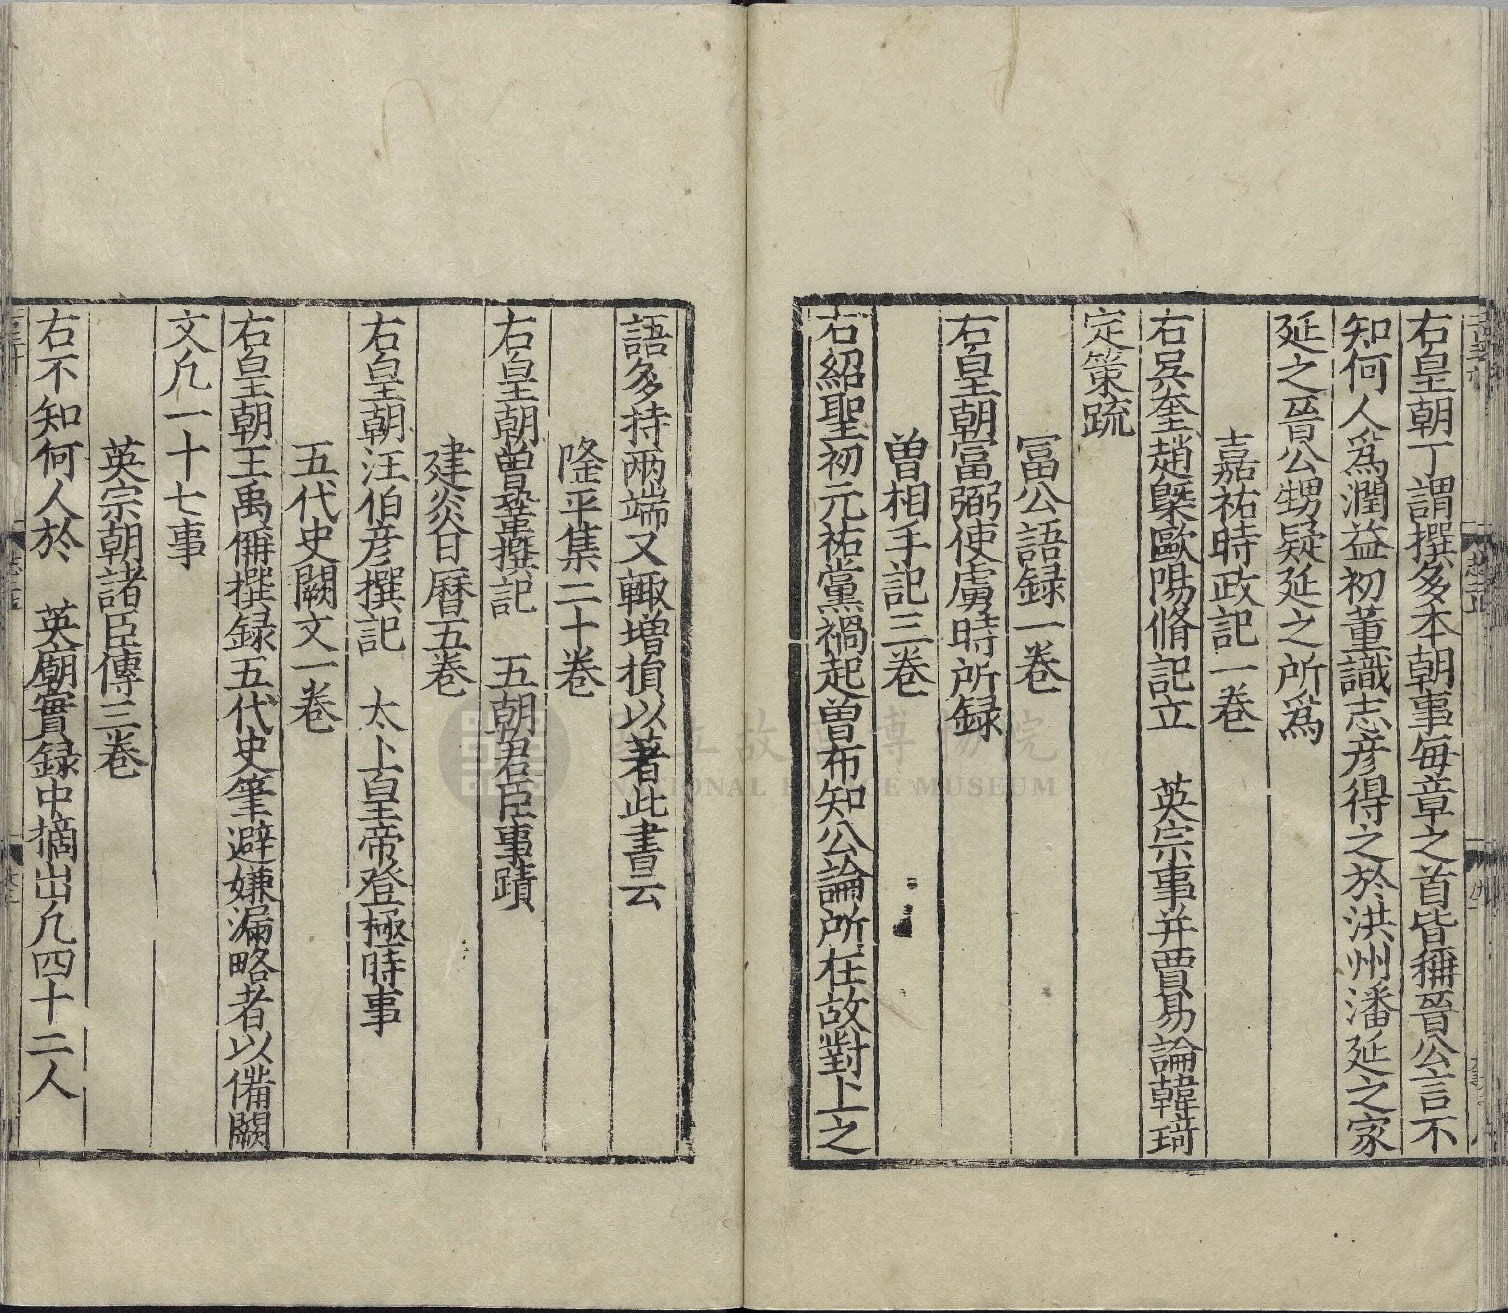 右皇朝丁謂撰多本朝事每章之首皆稱晉公言不
知何人爲潤益初董識志彦得之於洪州潘延之家
延之晉公甥疑延之所爲
嘉祐時政記一卷
右吳奎趙槩歐陽脩記立　英宗事并賈易論韓琦
定策疏
冨公語録一卷
右皇朝富弼使虜時所録
曾相手記三卷
右紹聖初元祐黨禍起曾布知公論所在故對上之
語多持兩端又輙增損以著此書云
隆平集二十卷
右皇朝曾鞏撰記　五朝君臣事蹟
建炎日曆五卷
右皇朝汪伯彦撰記　太上皇帝登極時事
五代史闕文一卷
右皇朝王禹偁撰録五代史筆避嫌漏略者以備闕
文凢一十七事
英宗朝諸臣傳三卷
右不知何人於　英廟實録中摘出凢四十二人
NATIONAL PALACE MUSEUM